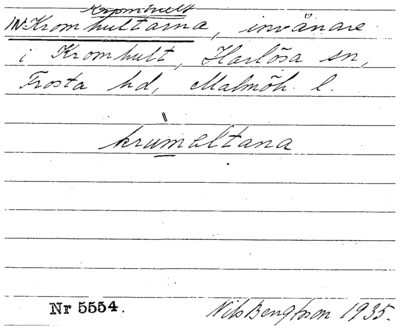 Kromhult
IN: Kromhultarna, invånare
i Kromhult, Harlösa sn,
Frosta hd, Malmöh. l.
krumeltana
Nr 5554.
Nils Bengtsson 1935.